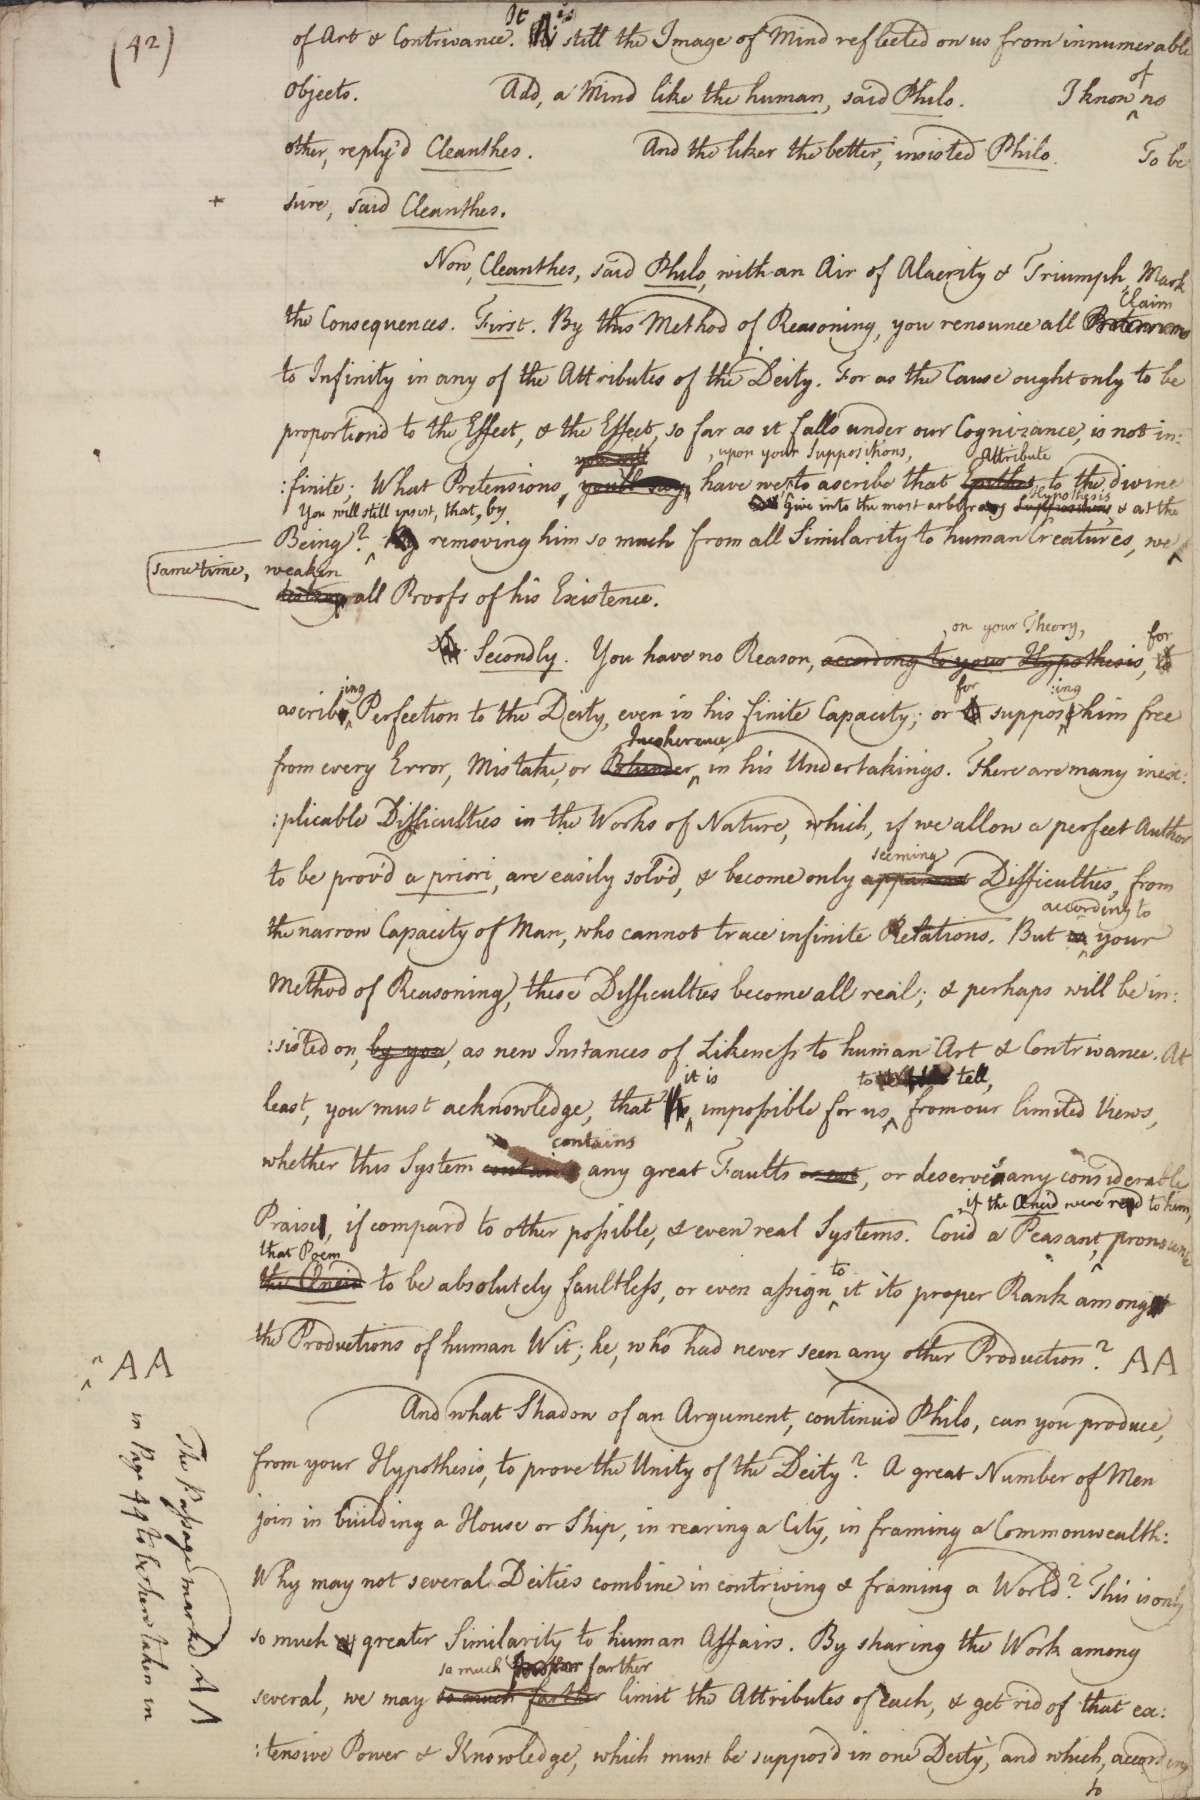 (42)
of Art & Contrivance. It is still the Image of Mind reflected on us from innumerable
objects. Add, a Mind like the human, said Philo. I know of no
other, reply'd Cleanthes. And the liker the better, insisted Philo. To be
sure, said Cleanthes.
Now, Cleanthes, said Philo, with an Air of Alacrity & Triumph, Mark
the Consequences. First. By this Method of Reasoning, you renounce all Claim
to Infinity in any of the Attributes of the Deity. For as the Cause ought only to be
proportion'd to the Effect, & the Effect, so far as it falls under our Cognizance, is not in:
you will , upon your Suppositions, Attribute
:finite; What Pretensions, you'll say, have we, to ascribe that Epithet to the divine
You will still insist, that, by Give into the most arbitrary Hypothesis, & at the
Being? removing him so much from all Similarity to human Creatures, we
same time, weaken
destroy all Proofs of his Existence.
, on your Theory, for
Secondly. You have no Reason, according to your Hypothesis, to
ing for :ing
ascribe Perfection to the Deity, even in his finite Capacity; or suppose him free
Incoherence
from every Error, Mistake, or Blunder, in his Undertakings. There are many inex:
:plicable Difficulties in the Works of Nature, which, if we allow a perfect Author
seeming
to be prov'd a priori, are easily solv'd, & become only apparent Difficulties, from
according to
the narrow Capacity of Man, who cannot trace infinite Relations. But in your
Method of Reasoning, these Difficulties become all real; & perhaps will be in:
:sisted on, by you, as new Instances of Likeness to human Art & Contrivance. At
it is to tell,
least, you must acknowledge, that impossible for us, from our limited Views,
contains
whether this System contains any great Faults or not, or deserves any considerable
, if the Æneid were read to him,
Praise, if compard to other possible, & even real Systems. Coud a Peasant, pronounce
that Poem to
the Æneid to be absolutely faultless, or even assign it its proper Rank among
the Productions of human Wit; he, who had never seen any other Production? AA
AA
The Passage marked AA
in Page 49 to be here taken in
And what Shadow of an Argument, continu'd Philo, can you produce,
from your Hypothesis, to prove the Unity of the Deity? A great Number of Men
join in building a House or Ship, in rearing a City, in framing a Commonwealth:
Why may not several Deities combine in contriving & framing a World? This is only
so much greater Similarity to human Affairs. By sharing the Work among
so much farther
several, we may so much farther limit the Attributes of each, & get rid of that ex:
:tensive Power & Knowledge, which must be suppos'd in one Deity, and which, according
to